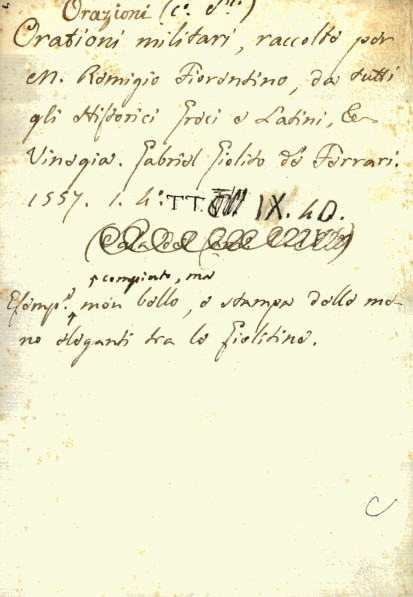 Orazioni (c.
Orationi militari, raccolte per
M. Remigio Fiorentino, da tutti
gli Historici Greci e Latini, &c
Vinegia. Gabriel Giolito de' Ferrari.
1557. 1. 4.° TT. IX. 4D.
compiuto, ma
Esemp.e non bello, e stampa delle me-
no eleganti tra le Giolitine.